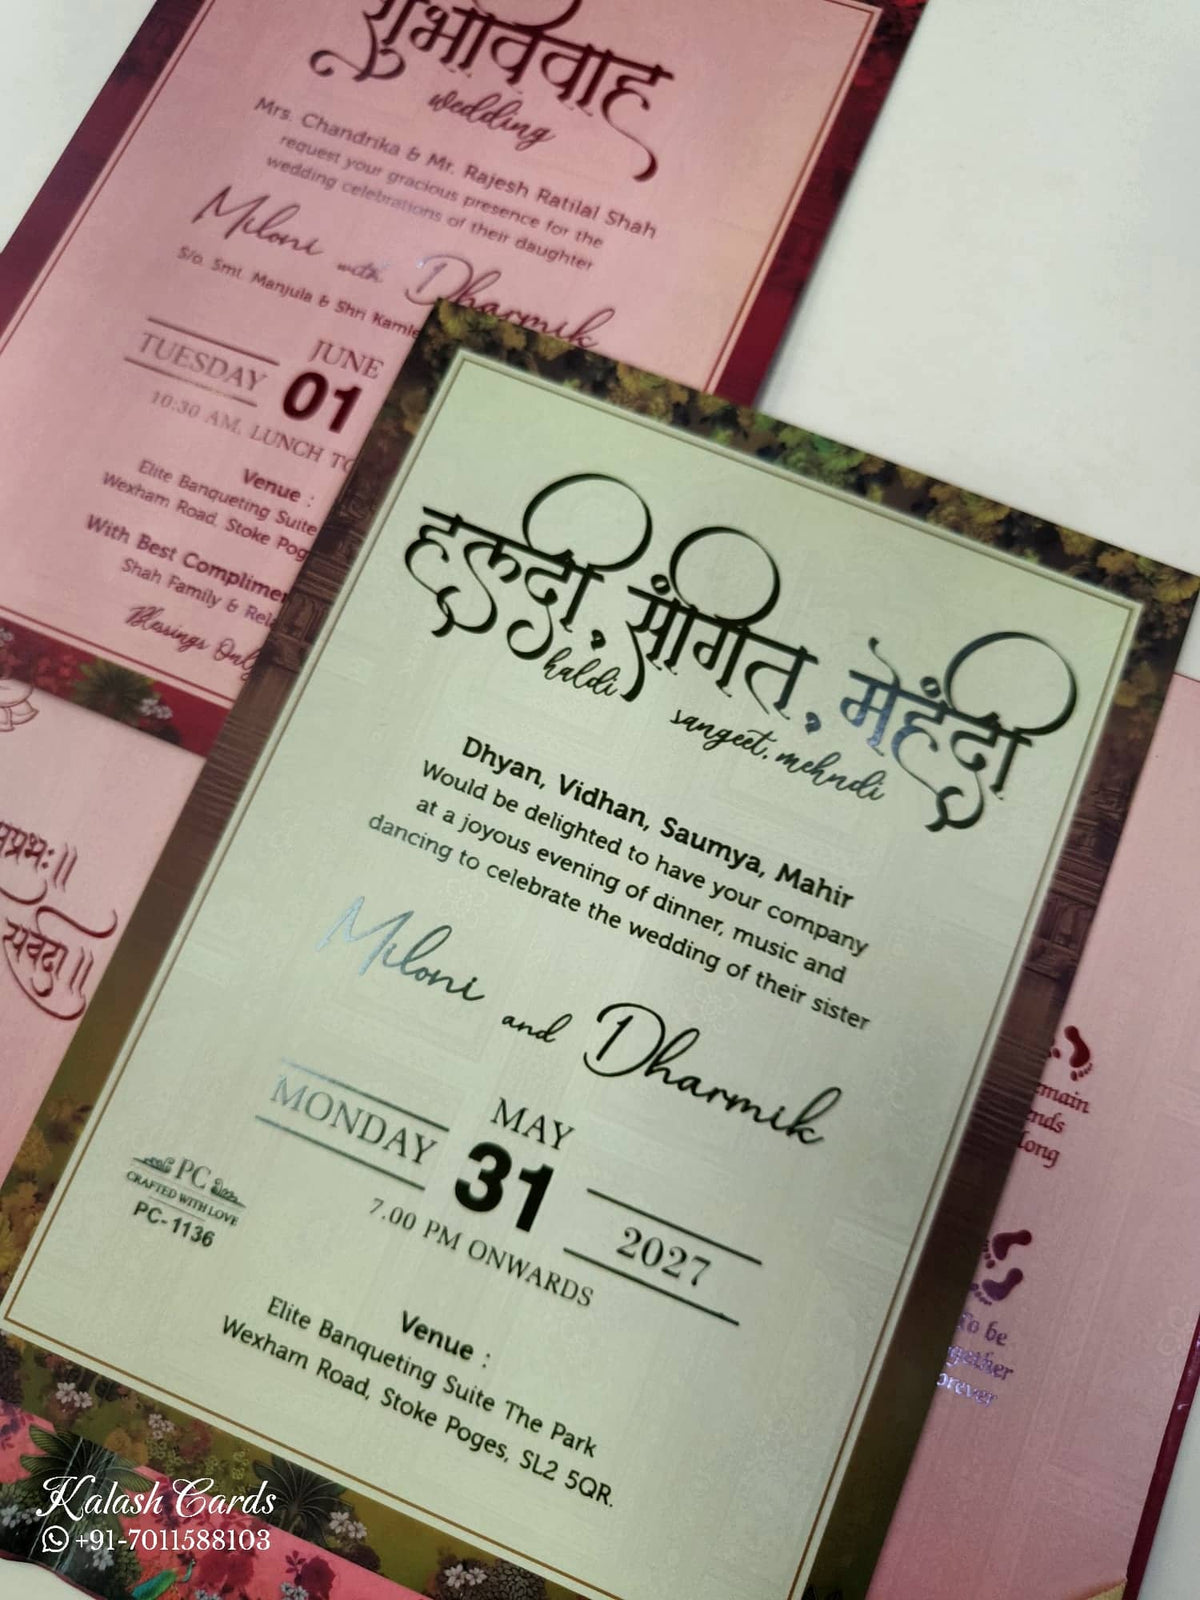 शुभविवाह
wedding
Mrs. Chandrika & Mr. Rajesh Ratilal Shah
request your gracious presence for the
wedding celebrations of their daughter
Miloni with Dharmik
S/o. Smt. Manjula & Shri
JUNE
TUESDAY 01
10:30 AM. LUNCH
Venue :
Elite Banqueting Suite
Wexham Road, Stoke
With Best
Shah Family &
Blessings Only
हल्दी, संगित, मेहंदी
haldi
sangeet, mehndi
Dhyan, Vidhan, Saumya, Mahir
Would be delighted to have your company
at a joyous evening of dinner, music and
dancing to celebrate the wedding of their sister
Miloni and Dharmik
MAY
MONDAY 31 2027
7.00 PM ONWARDS
PC
CRAFTED WITH LOVE
PC-1136
Venue :
Elite Banqueting Suite The Park
Wexham Road, Stoke Poges, SL2 5QR.
long
To be
Kalash Cards
+91-7011588103